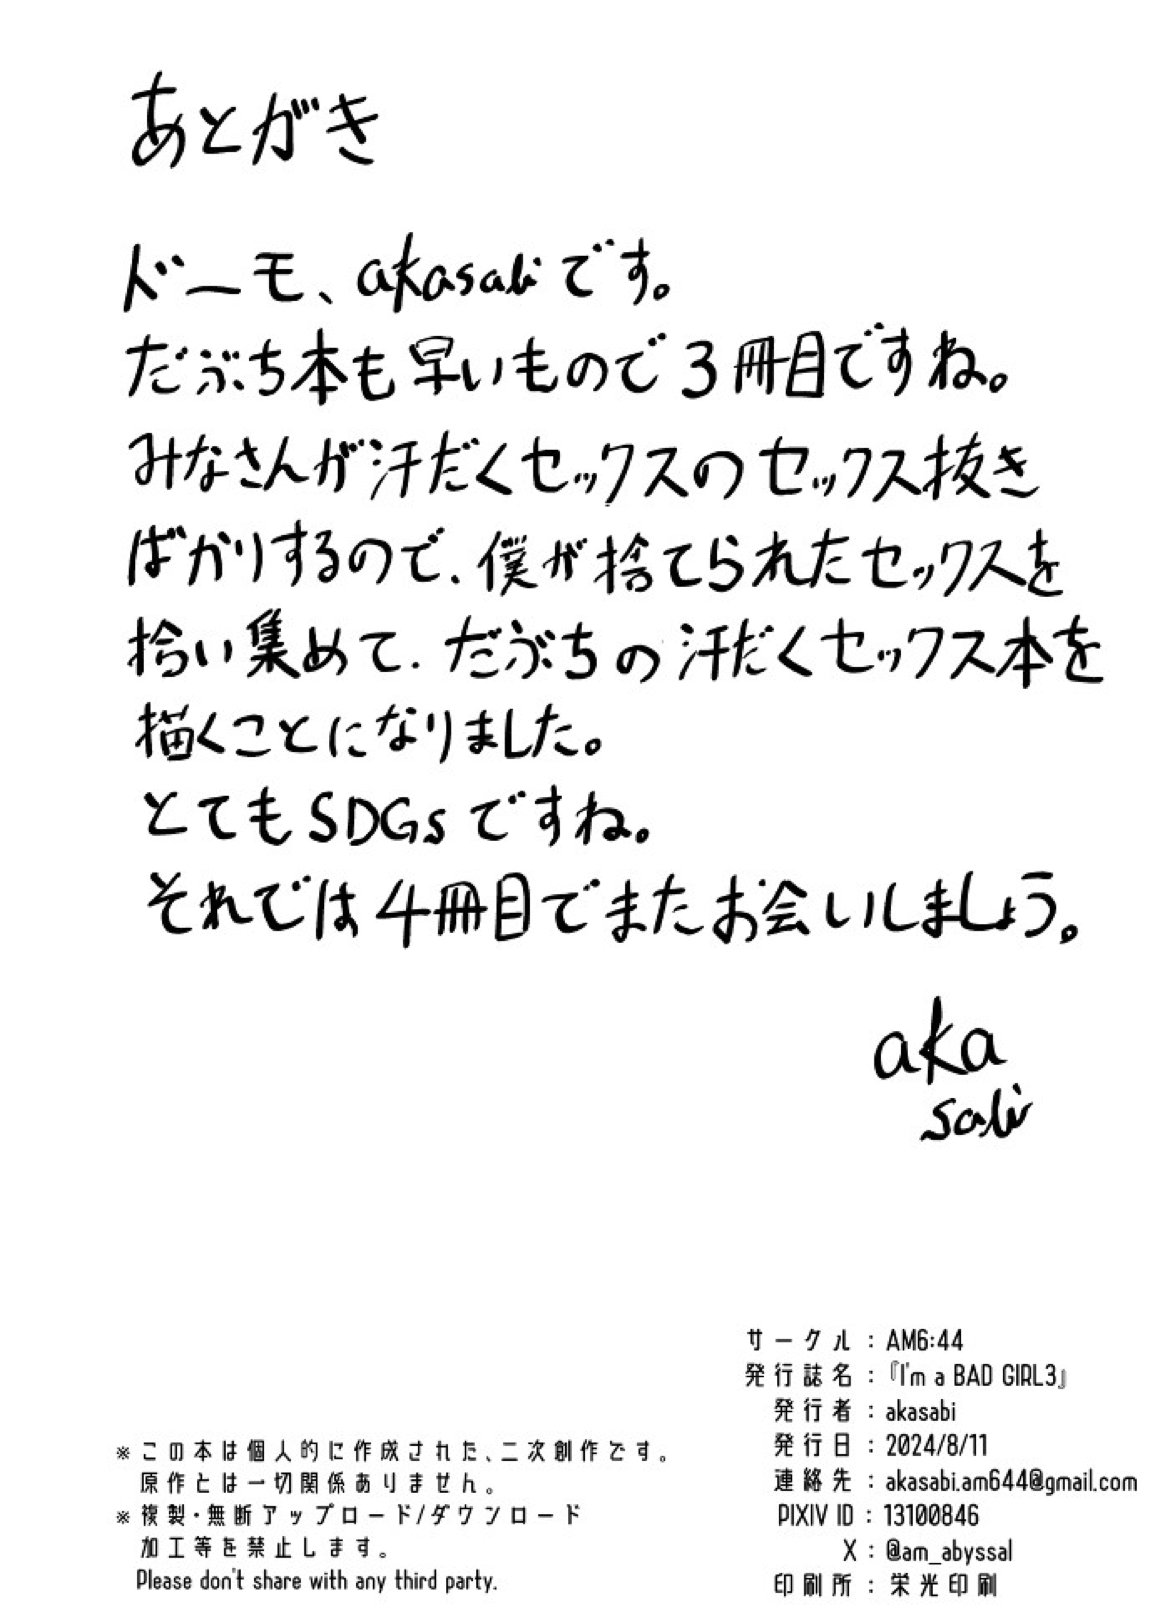 あとがき
ドーモ、akasabiです。
だぶち本も早いもので3冊目ですね。
みなさんが汗だくセックスのセックス抜き
ばかりするので、僕が捨てられたセックスを
拾い集めて、だぶちの汗だくセックス本を
描くことになりました。
とてもSDGsですね。
それでは4冊目でまたお会いしましょう。
aka
sabi
※この本は個人的に作成された、二次創作です。
原作とは一切関係ありません。
※複製・無断アップロード/ダウンロード
加工等を禁止します。
Please don't share with any third party.
サークル：AM6:44
発行誌名：『I'm a BAD GIRL3』
発行者：akasabi
発行日：2024/8/11
連絡先：akasabi.am644@gmail.com
PIXIV ID：13100846
X：@am_abyssal
印刷所：栄光印刷